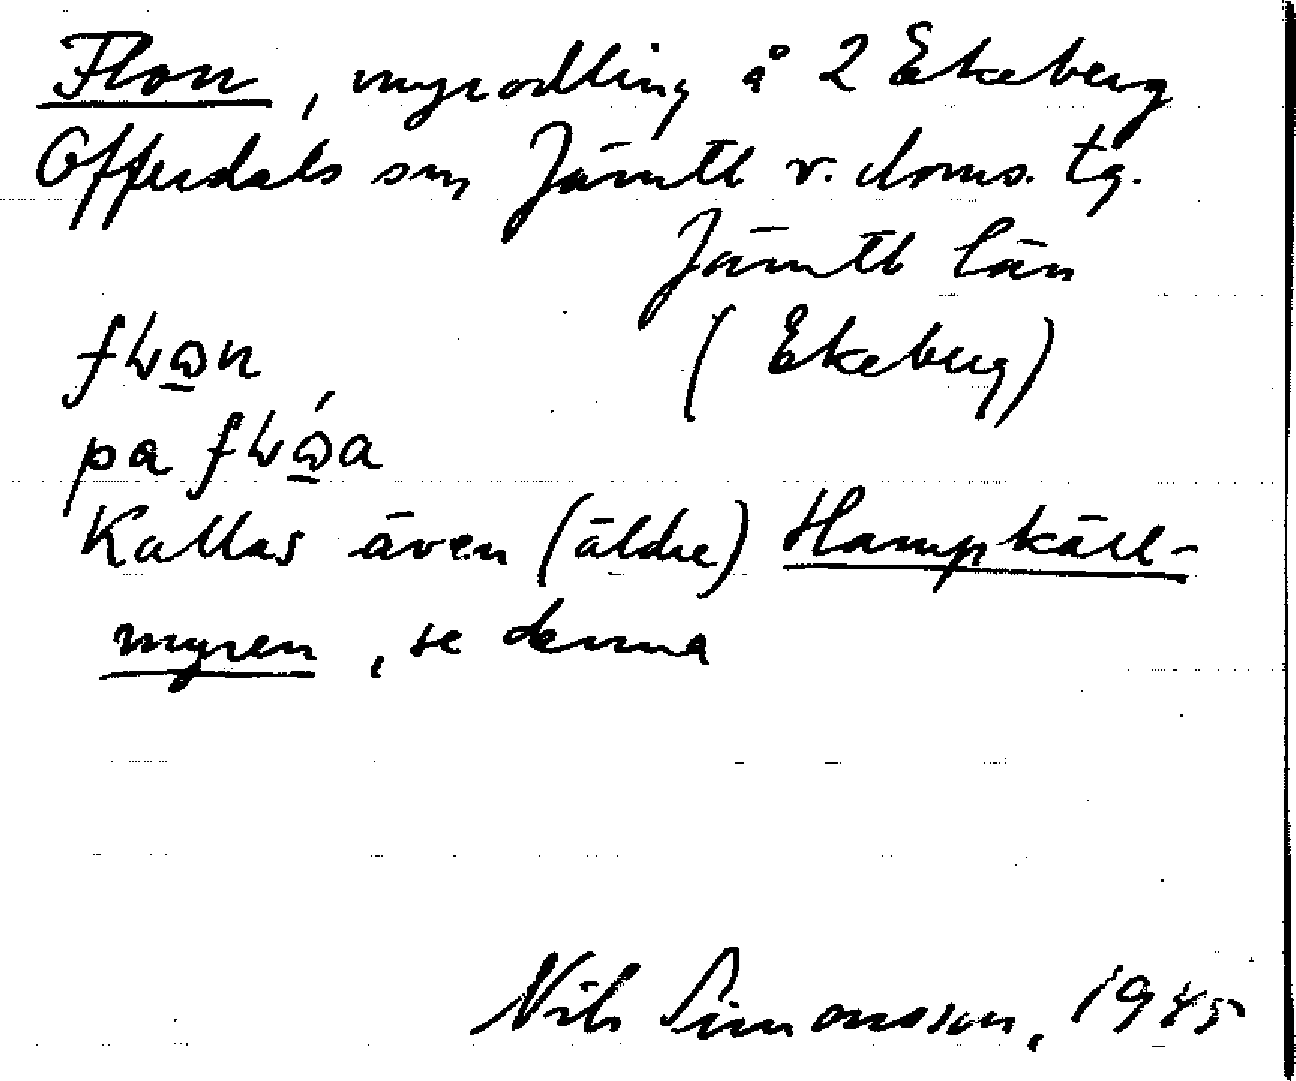 Flon, myrodling å 2 Ekeberg
Offerdals sn Jämtl v. doms. tg.
Jämtl län
(Ekeberg)
Kallas även (äldre) Hampkäll-
myren, se denna
Nils Simonsson, 1945